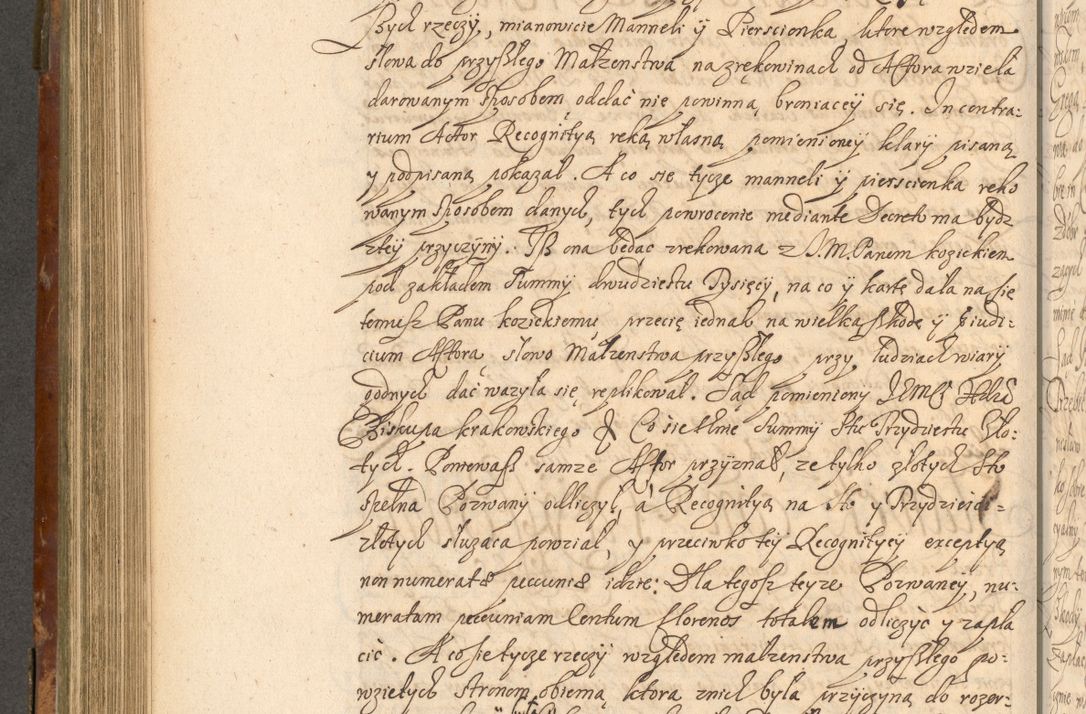 Bych rzeczy, mianowicie Manneli ÿ Pierscionka, ktore względem
słowa do przyßłego Małzenstwa na zrękowinach od Aktora wzieła
darowanym sposobem oddać nie powinna, broniącey się. In contra-
rium Actor Recognitÿą ręką własną pomienioney klary pisaną
y podpisaną pokazał. A co się tycze manneli ÿ pierscionka ręko
wanym sposobem danych, tych powrocenie mediante Decreto ma bydz
z tey przyczyny. Iß ona będąc zrękowana z J.M. Panem kozickiem
pod zakładem Summy dwudziestu Tysięcy, na co ÿ kartę dała na się
temusz Panu kozickiemu, przecię iednak na wielką ßkodę ÿ Piudi-
cium Aktora, słowo Małzenstwa przyßłego przy ludziach wiary
godnych dać wazyła się, replikował. Sąd pomieniony
Biskupa krakowskiego Co się tknie Summy Stu Trzydziestu Zło-
tych. Poniewaß samze Aktor przyznał, ze tylko złotych sto
spełna Pozwany odliczył, a Recognitÿą na sto y Trzydzieści
złotych słuząca powział, y przeciwko tey Recognitÿey exceptyą
non numeratæ pecuniæ idzie: Dla tegosz teyze Pozwaney, nu-
meratam pecuniam Centum florenos totalem odliczyć y zapła
cić. A co się tycze rzeczy względem małzenstwa przyßłego po-
wziętych stronom obiema, ktora znich była przyczyną do rozer-